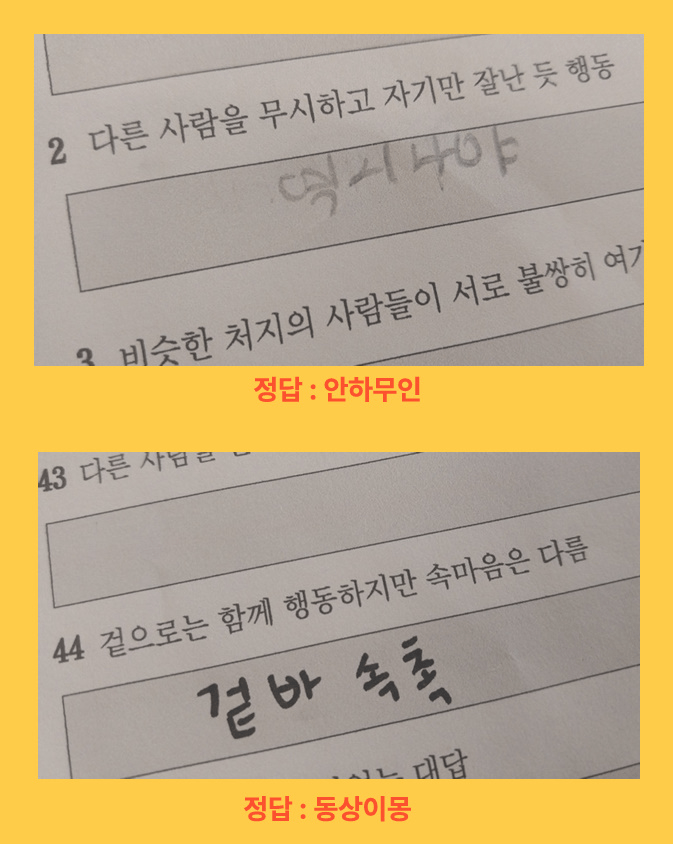 2 다른 사람을 무시하고 자기만 잘난 듯 행동
역시나야
3 비슷한 처지의 사람들이 서로 불쌍히
정답 : 안하무인
43 다른 사람을
44 겉으로는 함께 행동하지만 속마음은 다름
겉바 속촉
대답
정답 : 동상이몽